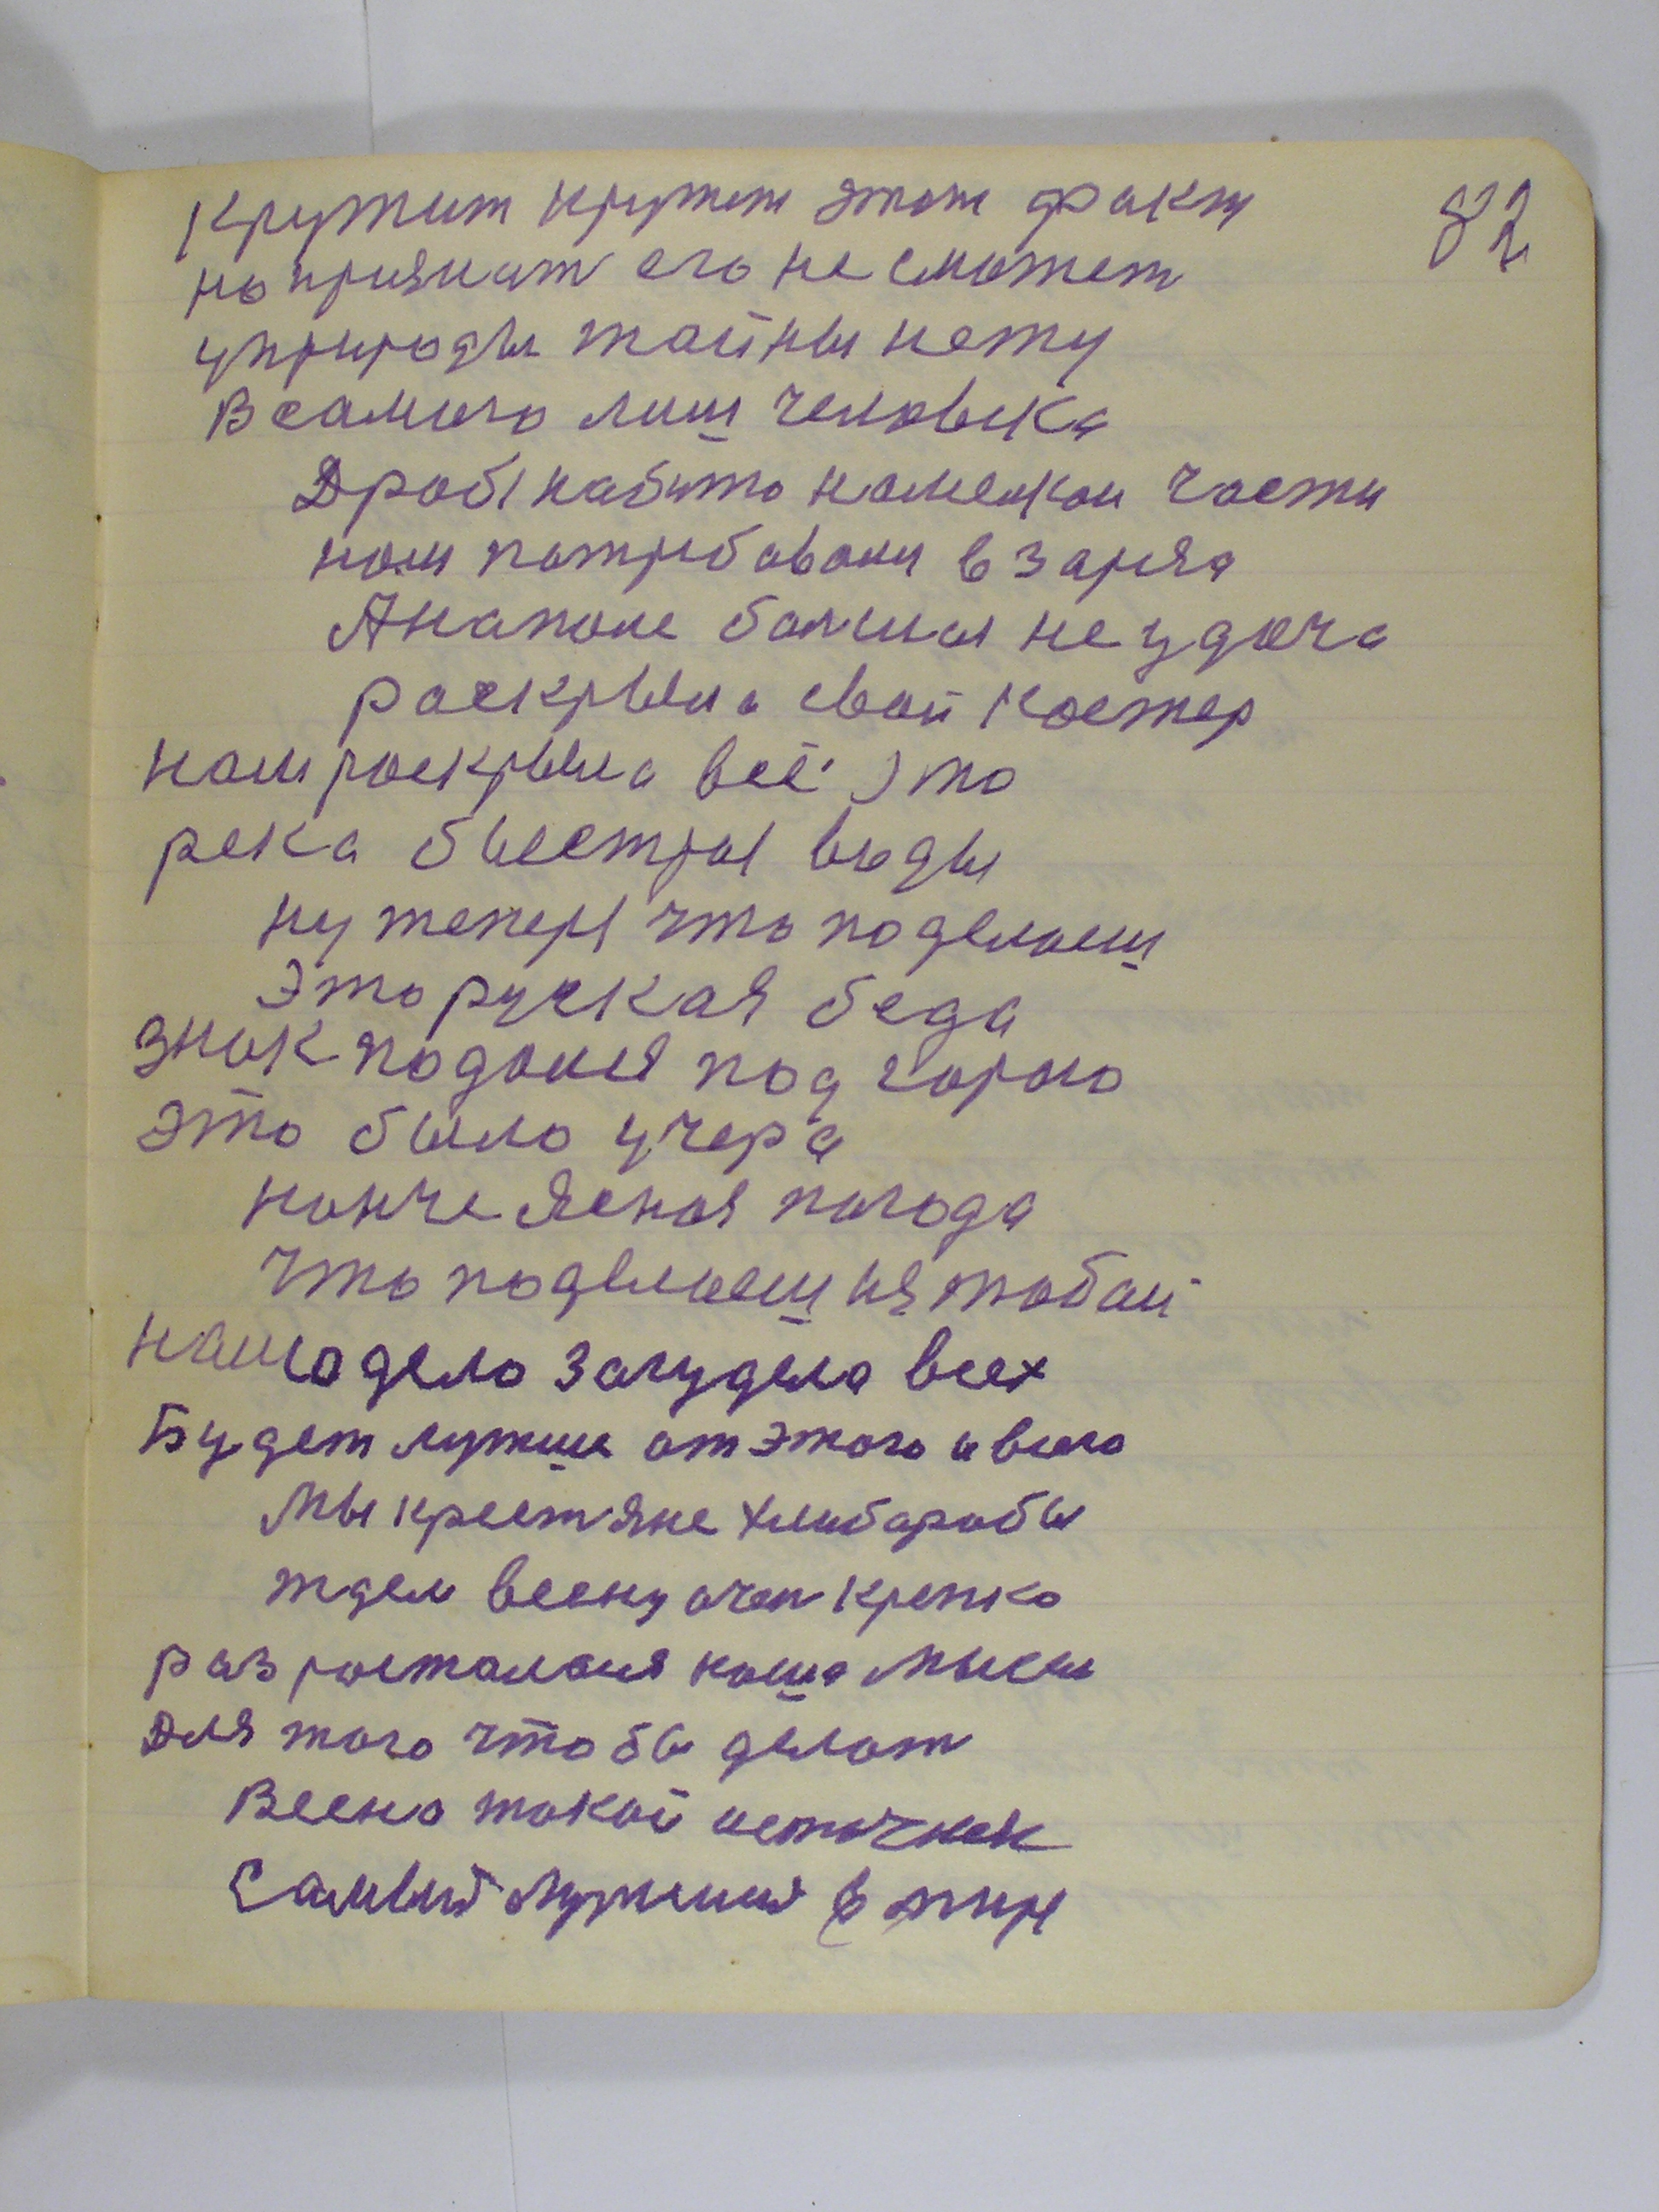 Кружит кружит этот факт
82
но приянат его не сможет
у природы тайны нету
В самого лиш человека
Дробь набито на мелкои части
нам потребовали в заряд
А на поле балшая не удача
раскрыла свой костер
нам раскрыла всё это
река быстры воды
ну теперь что поделаеш
Это руская беда
знак подался под горло
это было учера
нонче ясная погода
что поделаеш из табай
нашо дело загудело всех
Будет лутши от этого и всего
Мы крестяне хлибаробы
ждем весну очен крепко
раз росталася наша мысли
Для того что бы делат
Весна такой источник
Самый лутшия в мири